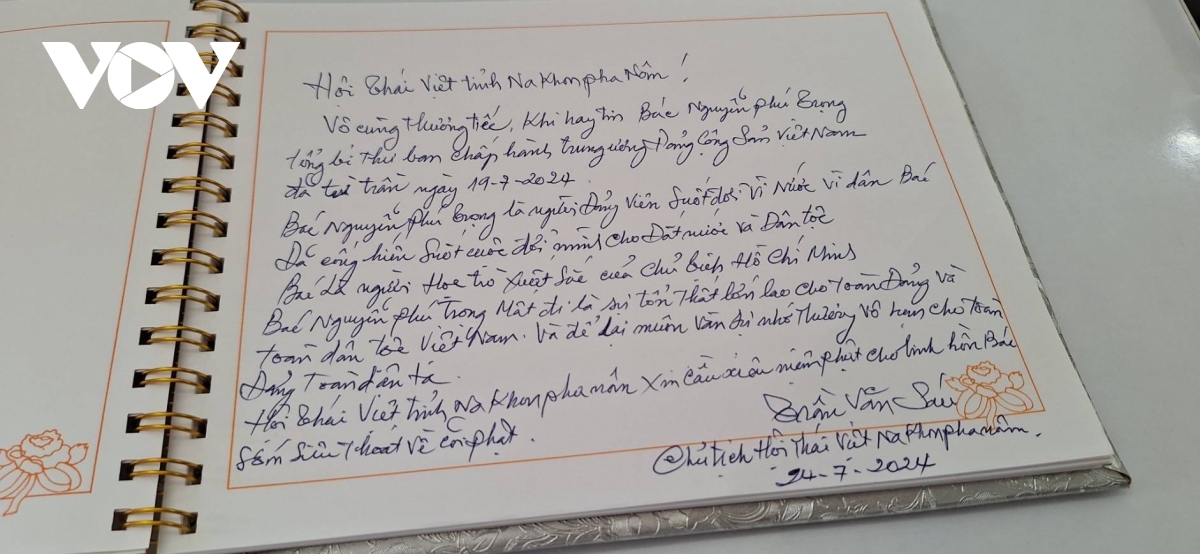 VOV
Hội Thái Việt tỉnh Na Khon pha Nôm!
Vô cùng thương tiếc, Khi hay tin Bác Nguyễn phú Trọng
tổng bí thư ban chấp hành trung ương Đảng Cộng Sản Việt Nam
đã từ trần ngày 19-7-2024.
Bác Nguyễn Phú Trọng là người Đảng Viên Suốt đời Vì Nước Vì dân Bác
Đã cống hiến Suốt cuộc đời mình cho Đất nước và Dân tộc
Bác Là người Học trò Xuất Sắc của Chủ tịch Hồ Chí Minh
Bác Nguyễn Phú Trọng Mất đi là sự tổn thất lớn lao cho Toàn Đảng và
toàn dân tộc Việt Nam. Và để lại muôn vàn sự nhớ Thương Vô hạn cho toàn
Đảng Toàn dân ta.
Hội Thái Việt tỉnh Na Khon pha nôm Xin cầu niệm phật cho linh hồn Bác
Sớm Siêu Thoát Về cõi phật.
Trần Văn Sáu
Chủ tịch Hội Thái Việt Na Khon pha nôm.
24-7-2024